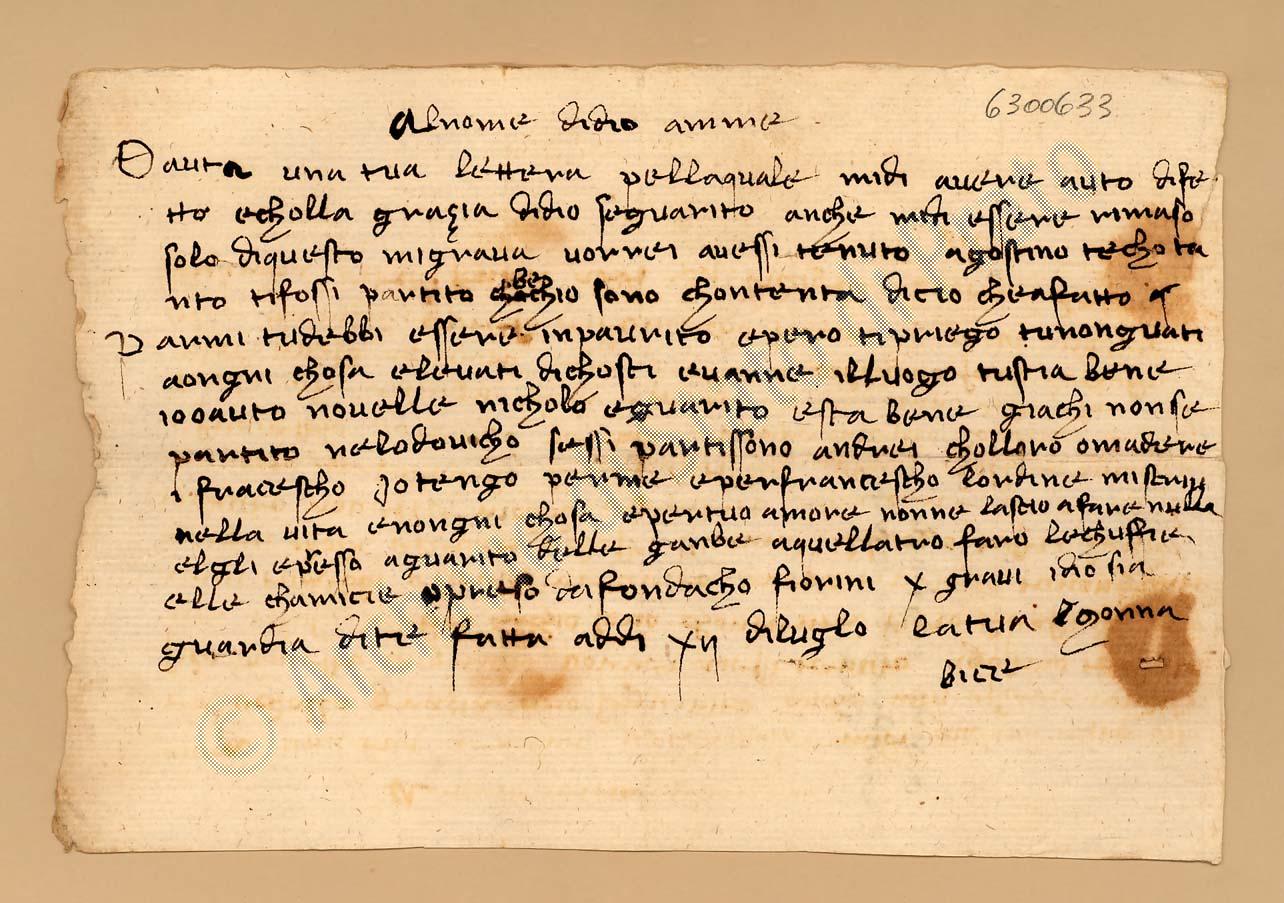 6300633
Al nome di dio amme
O auta una tua lettera pella quale mi di avere auto dife
tto e cholla grazia didio se guarito anche mi di essere rimaso
solo di questo mi grava vorrei avessi tenuto agostino techo ta
nto ti fossi partito be chio sono chontenta di cio che a fatto
Parmi tu debbi essere inpaurito e pero ti priego tu non guati
a ongni chosa e levati di chosti e vanne i lluogo tu stia bene
io o auto novelle nicholo e guarito e sta bene giachi non se
partito ne lodovicho sessi partissono andrei cholloro o madere
i fracescho Io tengo per me e per francescho l ordine mi scrivi
nella vita e n ongni chosa e per tuo amore nonne lascio a fare nulla
elgli e presso a guarito delle ganbe a quell atro faro le chuffie
e lle chamicie o preso da fondacho fiorini x gravi idio sia
guardia di te fatta a ddi xii di luglo la tua monna
bice
© Archivio di Stato di Prato